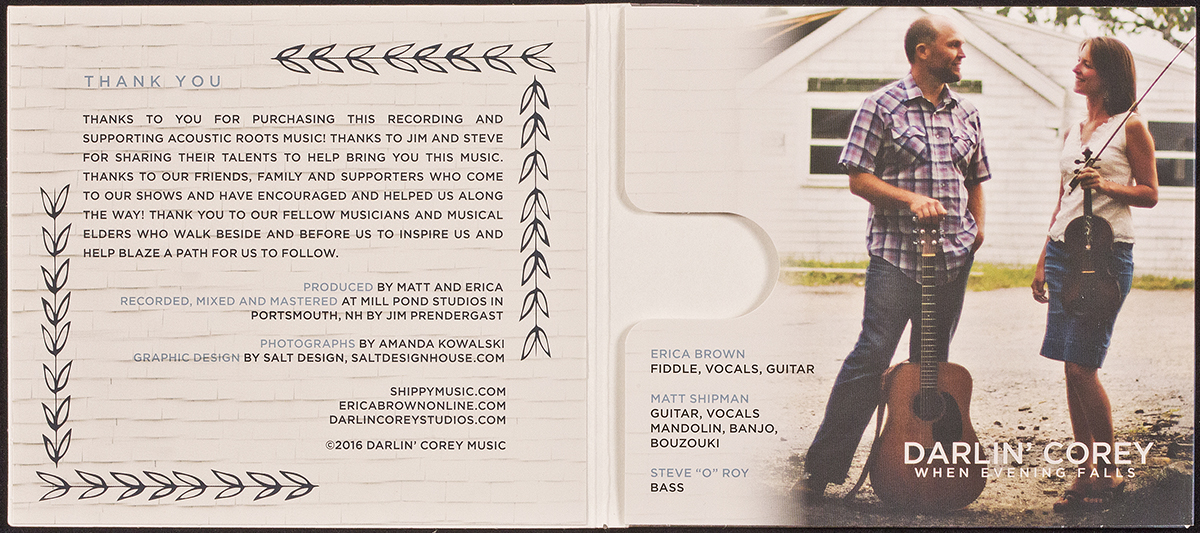 THANK YOU
THANKS TO YOU FOR PURCHASING THIS RECORDING AND
SUPPORTING ACOUSTIC ROOTS MUSIC! THANKS TO JIM AND STEVE
FOR SHARING THEIR TALENTS TO HELP BRING YOU THIS MUSIC.
THANKS TO OUR FRIENDS, FAMILY AND SUPPORTERS WHO COME
TO OUR SHOWS AND HAVE ENCOURAGED AND HELPED US ALONG
THE WAY! THANK YOU TO OUR FELLOW MUSICIANS AND MUSICAL
ELDERS WHO WALK BESIDE AND BEFORE US TO INSPIRE US AND
HELP BLAZE A PATH FOR US TO FOLLOW.
PRODUCED BY MATT AND ERICA
RECORDED, MIXED AND MASTERED AT MILL POND STUDIOS IN
PORTSMOUTH, NH BY JIM PRENDERGAST
PHOTOGRAPHS BY AMANDA KOWALSKI
GRAPHIC DESIGN BY SALT DESIGN, SALTDESIGNHOUSE.COM
SHIPPYMUSIC.COM
ERICABROWNONLINE.COM
DARLINCOREYSTUDIOS.COM
©2016 DARLIN' COREY MUSIC
ERICA BROWN
FIDDLE, VOCALS, GUITAR
MATT SHIPMAN
GUITAR, VOCALS
MANDOLIN, BANJO,
BOUZOUKI
STEVE "O" ROY
BASS
DARLIN' COREY
WHEN EVENING FALLS